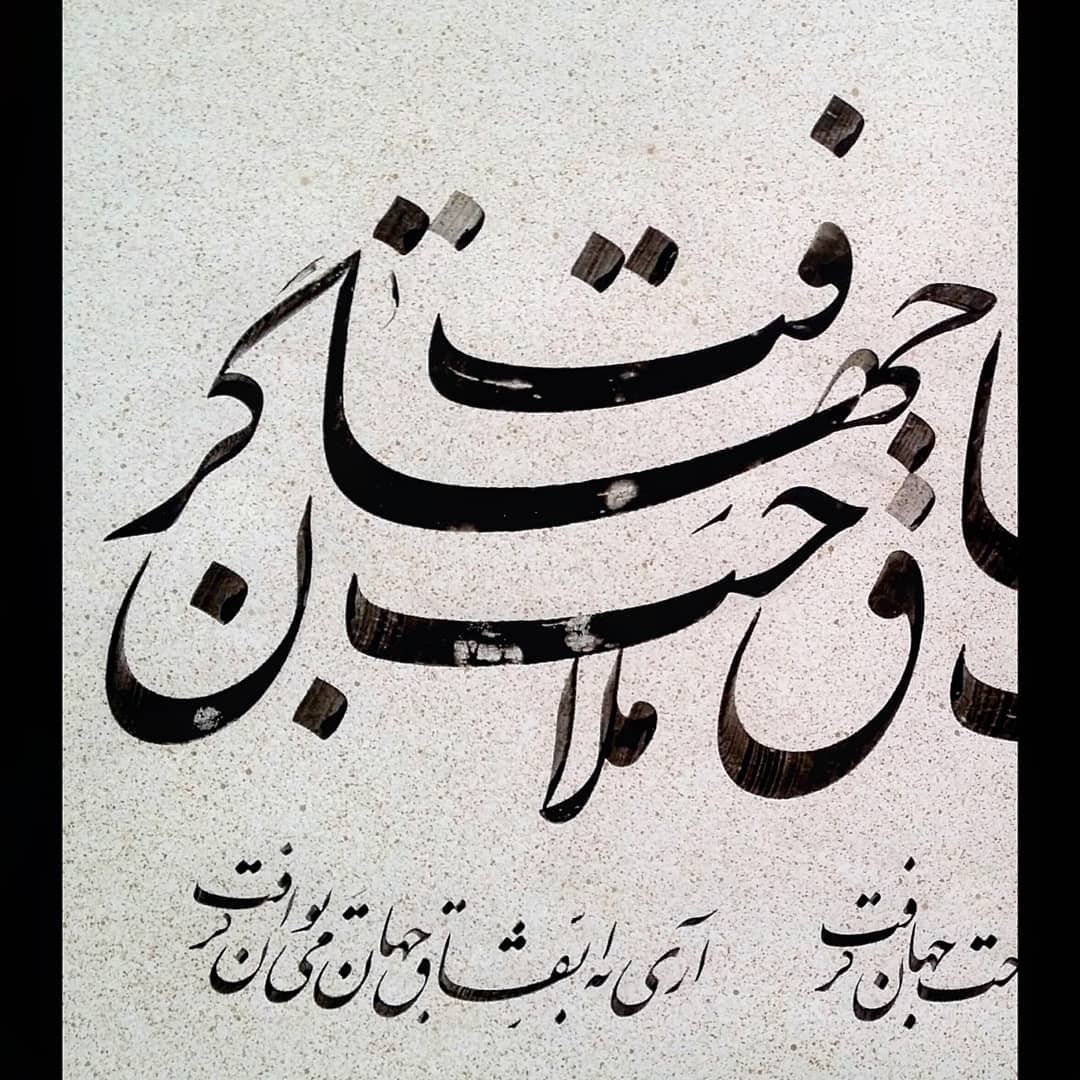 ق ملاحت جهان گرفت
حت جهان گرفت آری به اتفاق جهان می توان گرفت